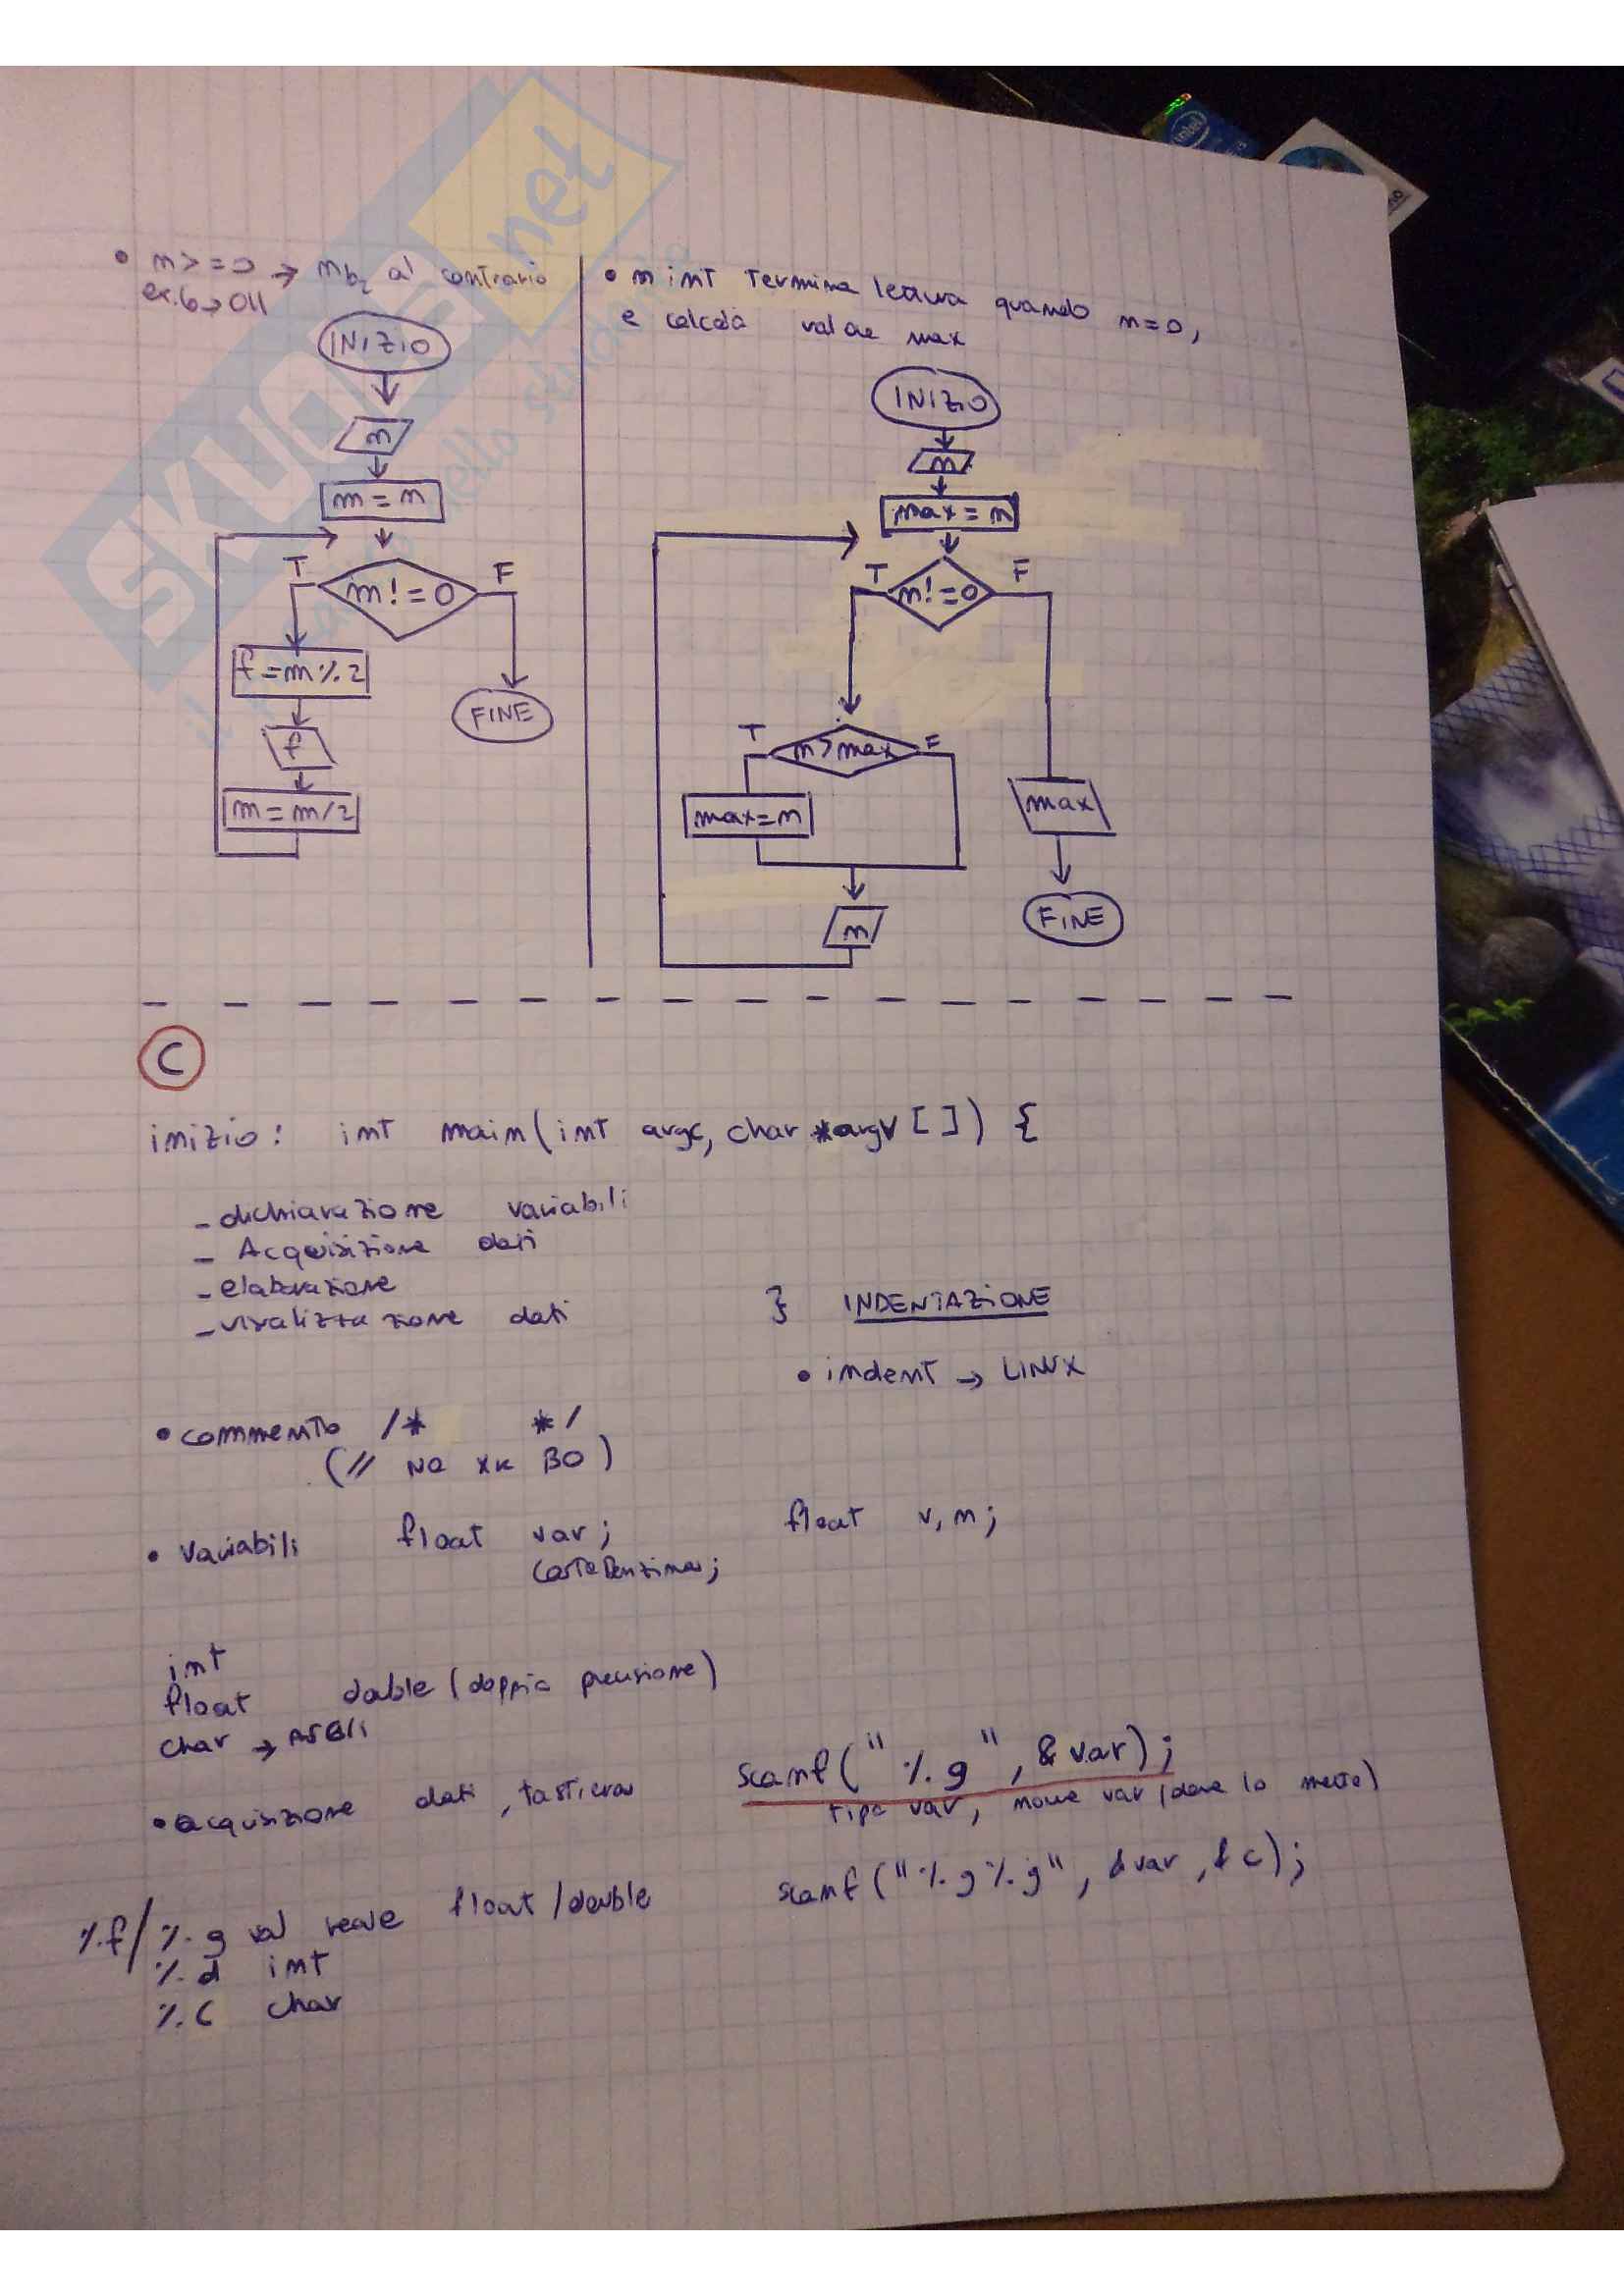 • n>=0 → nb2 al contrario
ex. 6→011
INIZIO
n
m=n
T
m!=0
F
f=m%2
FINE
f
m=m/2
• n int termina lettura quando n=0,
e calcola valore max
INIZIO
n
max=n
T
n!=0
F
T
n>max
F
max=n
max
n
FINE
C
inizio: int main(int argc, char *argv[]) {
- dichiarazione variabili
- Acquisizione dati
- elaborazione
- visualizzazione dati
} INDENTAZIONE
• indent → LINUX
• commento /* */
(// NO BO)
• variabili float var; float v, n;
int
float double (doppia precisione)
char → ASCII
• acquisizione dati, tastiera scanf("%g", &var);
tipo var, nome var (dove lo mette)
%f/%g val reale float/double scanf("%g%g", &var, &c);
%d int
%c char
SKUOLA.net
intel